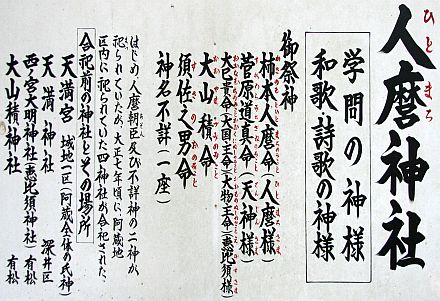 人麿神社
ひとまろ
学問の神様
和歌・詩歌の神様
御祭神
柿本人麿命(人麿様)
菅原道真命(天神様)
大己貴命(大国主命)(大物主命)(恵比須様)
大山積命
須佐之男命
神名不詳(一座)
はじめ、人麿朝臣及び不詳神の二神が、
祀られていたが、大正七年頃に、阿蔵地
区内に祀られていた四神社が合祀された。
合祀前の神社とその場所
天満宮 城地一区(阿蔵全体の氏神)
天満神社 深井区
西ノ宮大明神社(恵比須神社) 有松
大山積神社 有松